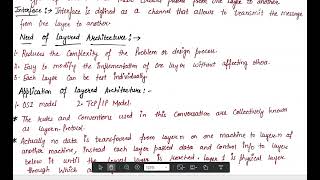 Interface :→ Interface is defined as a channel that allows to transmit the message
from One layer to another.
Need of layered Architecture :→
1- Reduces the Complexity of the Problem or design process.
2- Easy to modify the Implementation of One layer without affecting other.
3- Each layer can be test individually.
Application of layered Architecture :→
1- OSI model 2- TCP/IP Model.
* The Rules and Conventions used in this Conversation are Collectively known
as layer-n Protocol.
* Actually no data is transferred from layer n on one machine to layer-n of
another machine, Instead each layer passed data and Control info to layer
below it until the lowest layer is reached. layer 1 is physical layer
through which